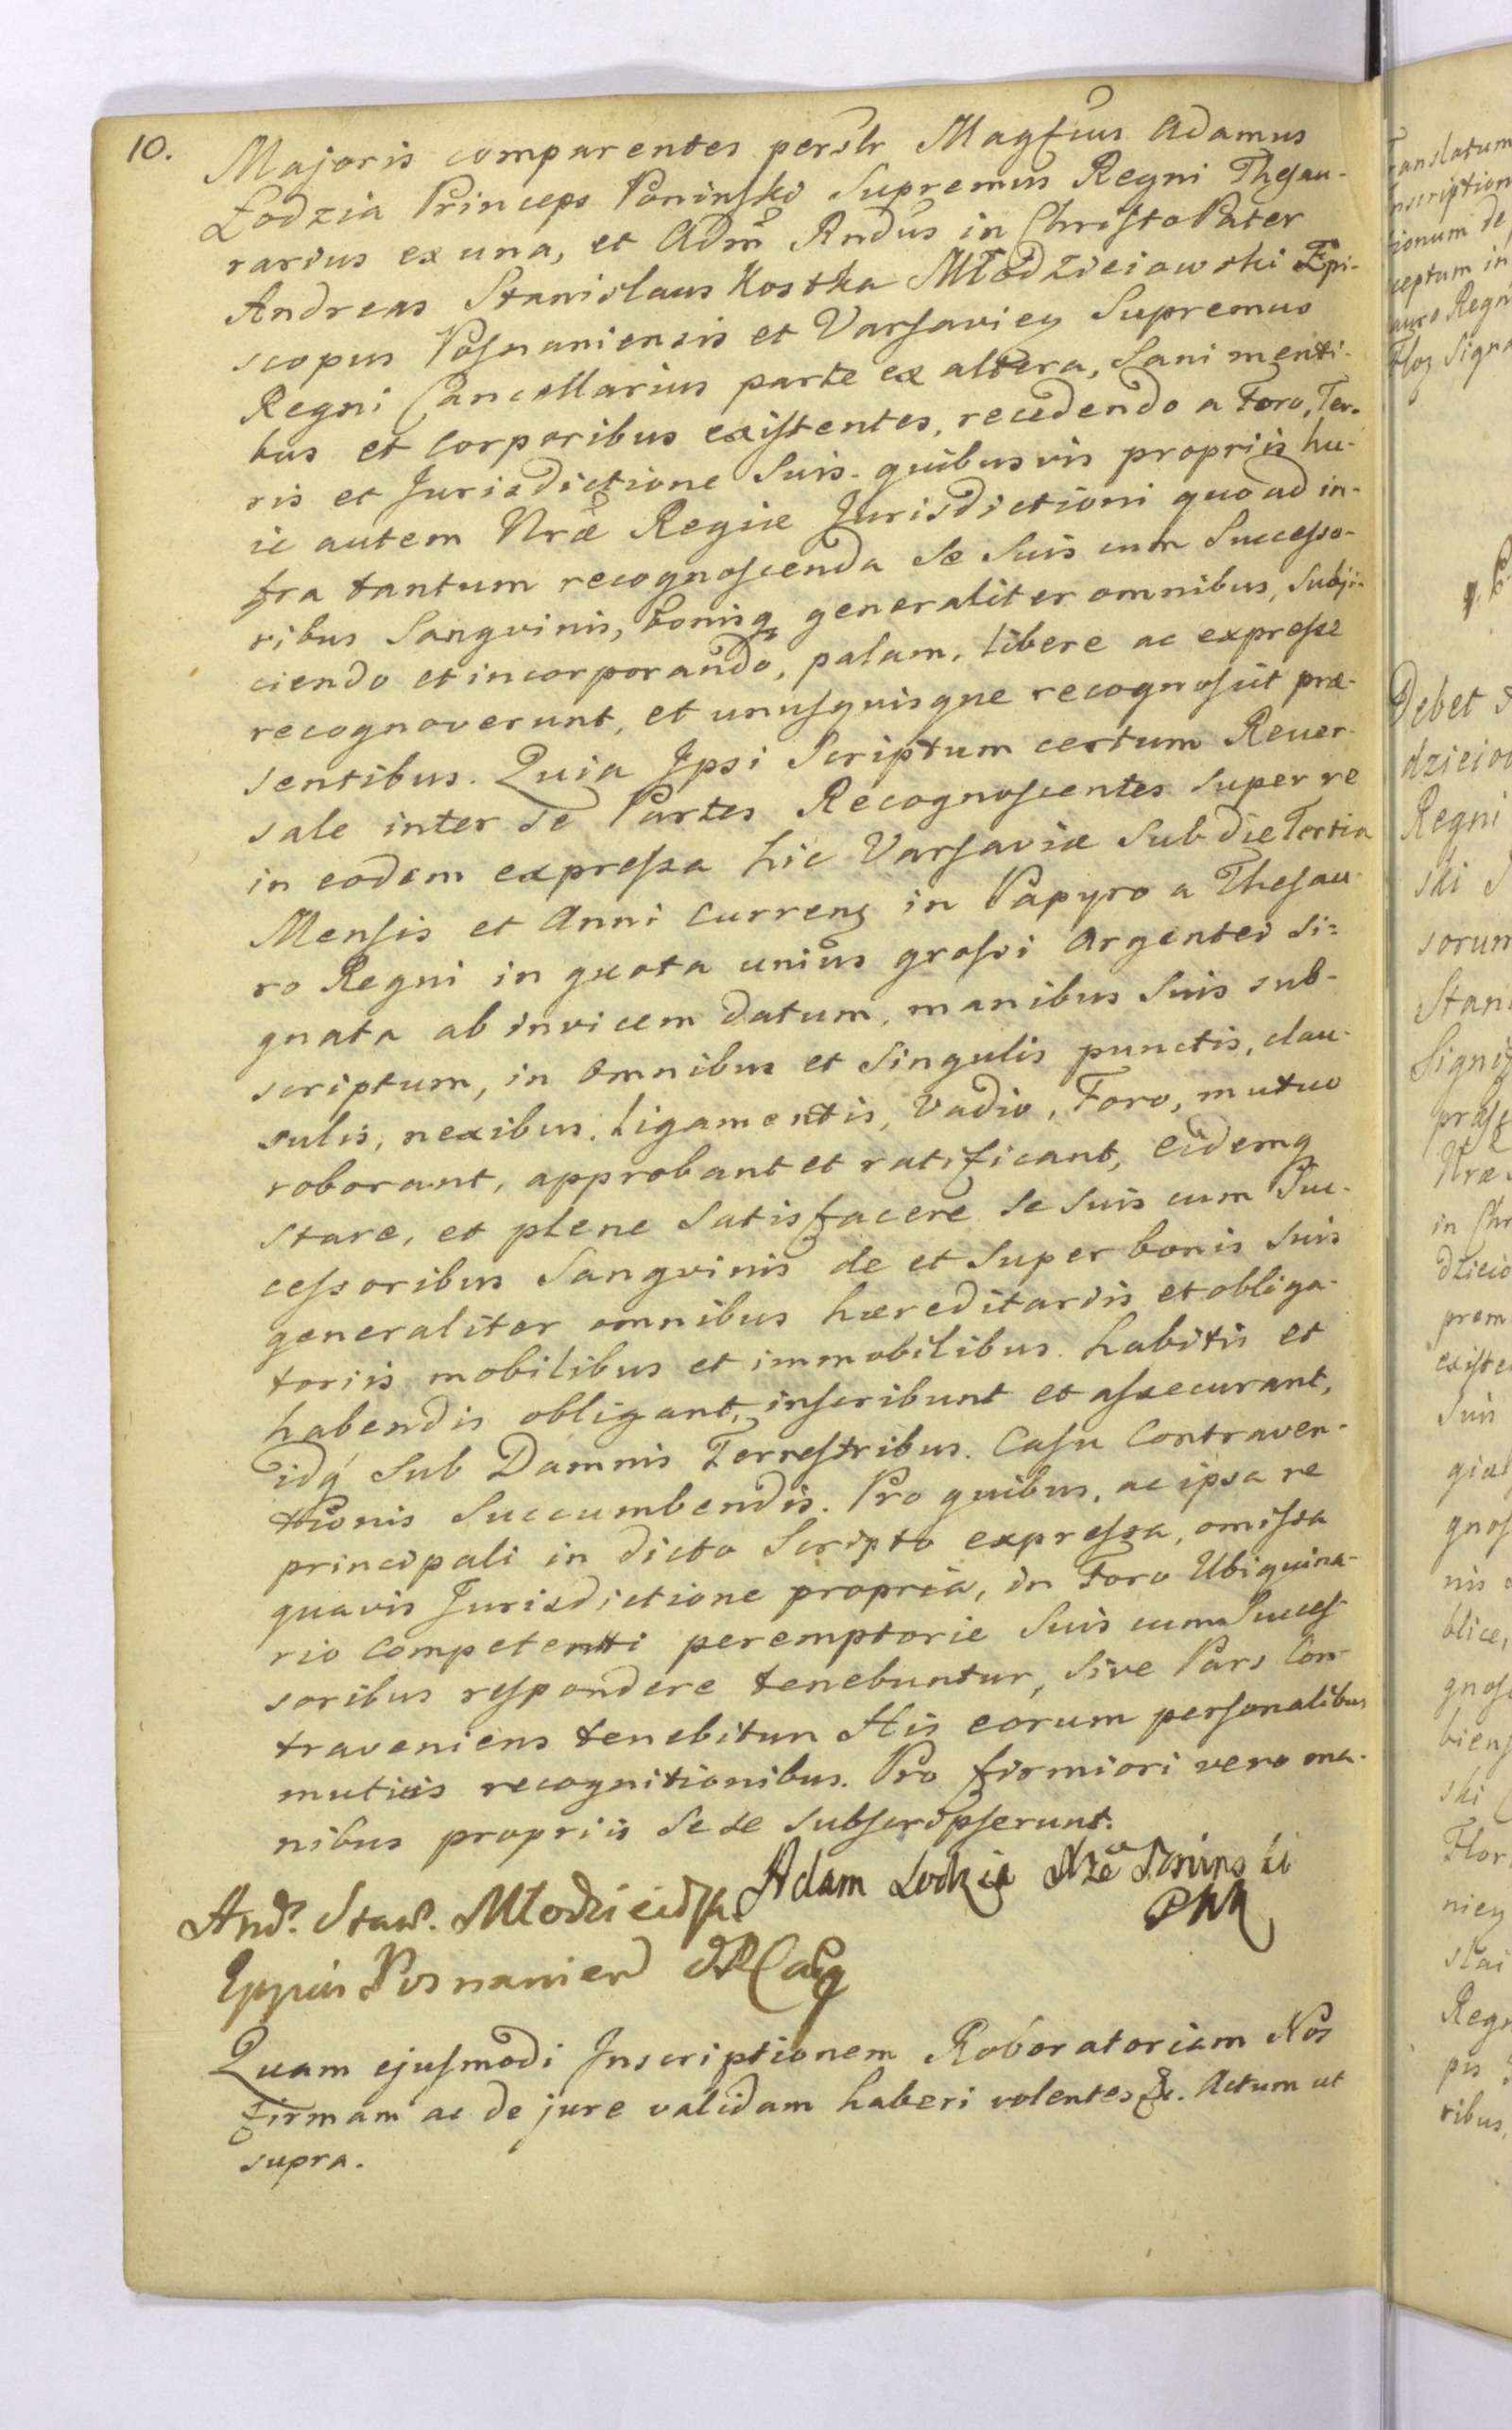 10.
Majoris comparentes perslr Magfcus Adamus
Łodzia Princeps Poninski Supremus Regni Thesau-
rarius ex una, et Adm̃ Rndus in Christo Pater
Andreas Stanislaus Kostka Młodzieiowski Epi-
scopus Posnaniensis et Varsavien Supremus
Regni Cancellarius parte ex altera, Sani menti-
bus et Corporibus existentes, recedendo a Foro, Ter-
ris et Jurisdictione Suis quibusvis propriis hu-
ic autem Nræ Regiæ Jurisdictioni quo ad in-
fra tantum recognoscenda Se Suis cum Successo-
ribus Sangvinis, bonisq generaliter omnibus, Subji-
ciendo et incorporando, palam, libere ac expresse
recognoverunt, et unusquisque recognoscit præ-
sentibus. Quia Ipsi Scriptum certum Rever-
sale inter Se Partes Recognoscentes Super re
in eodem expressa hic Varsaviæ Sub die Tertia
Mensis et Anni Curren in Papyro a Thesau-
ro Regni in quota unius grossi Argentei Si-
gnata ab invicem datum, manibus Suis sub-
scriptum, in Omnibus et Singulis punctis, clau-
sulis, nexibus, Ligamentis, Vadio, Foro, mutuo
roborant, approbant et ratificant, eidemq
stare, et plene Satisfacere Se Suis cum Suc-
cessoribus Sangvinis de et Super bonis Suis
generaliter omnibus hæreditariis et obliga-
toriis mobilibus et immobilibus habitis et
habendis obligant, inscribunt et assecurant,
idq Sub Damnis Terrestribus Casu Contraven-
tionis Succumbendis. Pro quibus, ac ipsa re
principali in dicto Scripto expressa, omissa
quavis Jurisdictione propria, in Foro Ubiquina-
rio Competenti peremptorie Suis cum Succes-
soribus respondere tenebuntur, Sive Pars Con-
traveniens tenebitur His eorum personalibus
mutuis recognitionibus. Pro firmiori vero ma-
nibus propriis Sese Subscripserunt.
Adam Lodzia Xże Poninski
And. Staw. Młodzieiowski
Eppus Posnanien
Quam ejusmodi Inscriptionem Roboratoriam Nos
firmam ac de jure validam haberi volentes &c. Actum ut
supra.